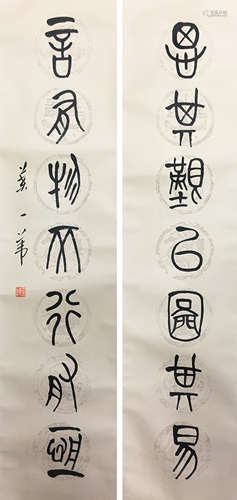 思其艱以圖其易
言有物而行有恆
黃一葦